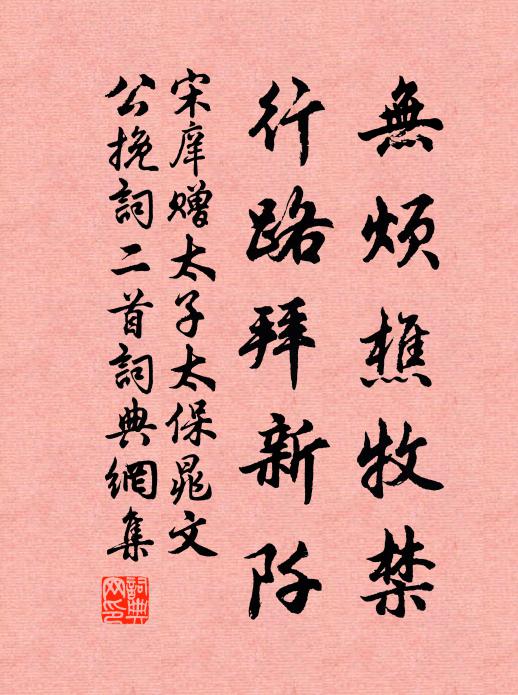 無煩樵牧禁
行路拜新阡
宋庠赠太子太保晁文
公挽詞二首詞典網集
詞典網印